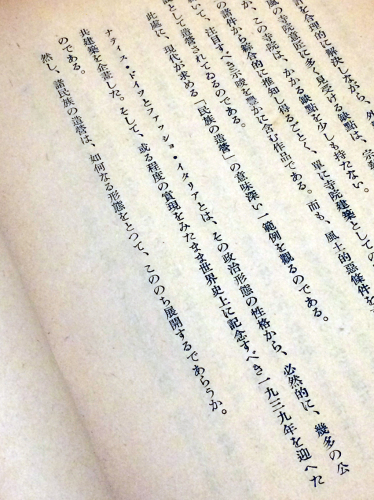 計を合理的に解決しながら、外
の寺院意匠に多く見受ける缺點は、
が、この寺院は、かかる缺點を少しも持たない。
の條件から綜合的に推知し得るごとく、單に寺院建築としての
いて、注目すべき示唆を豊かに含む作品である。而も、風土的惡條件を
として造營されてゐるのである。
此處に、現代が求める「民族の造營」の意味深い一範例を觀るのである。
ナティス・ドイツとファッショ・イタリアとは、その政治形態の性格から、必然的に、幾多の公
共建築を企畫した。そして、或る程度の實現をみたまま世界史上に記念すべき一九三九年を迎へた
のである。
然し、諸民族の造營は、如何なる形態をとつて、こののち展開するであらうか。